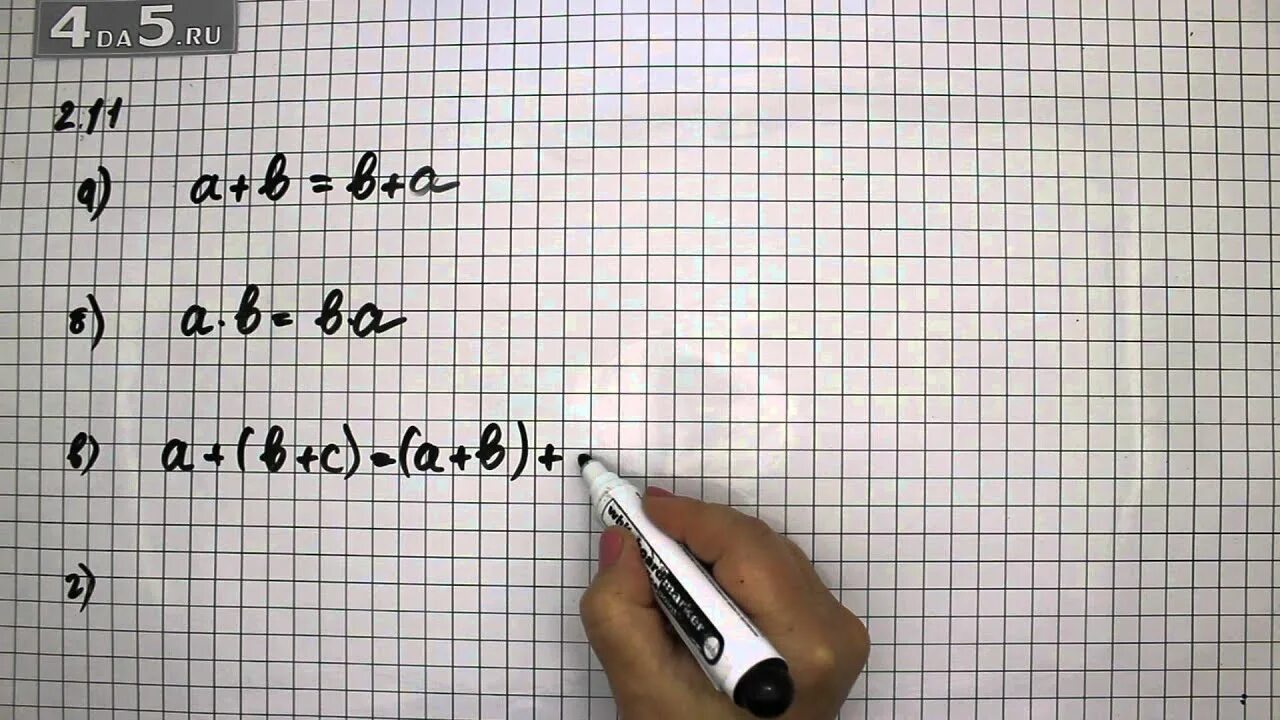 4DA5.RU
2.11
а) a + b = b + a
б) a · b = b · a
в) a + (b + c) = (a + b) +
г)
whiteboardmarker